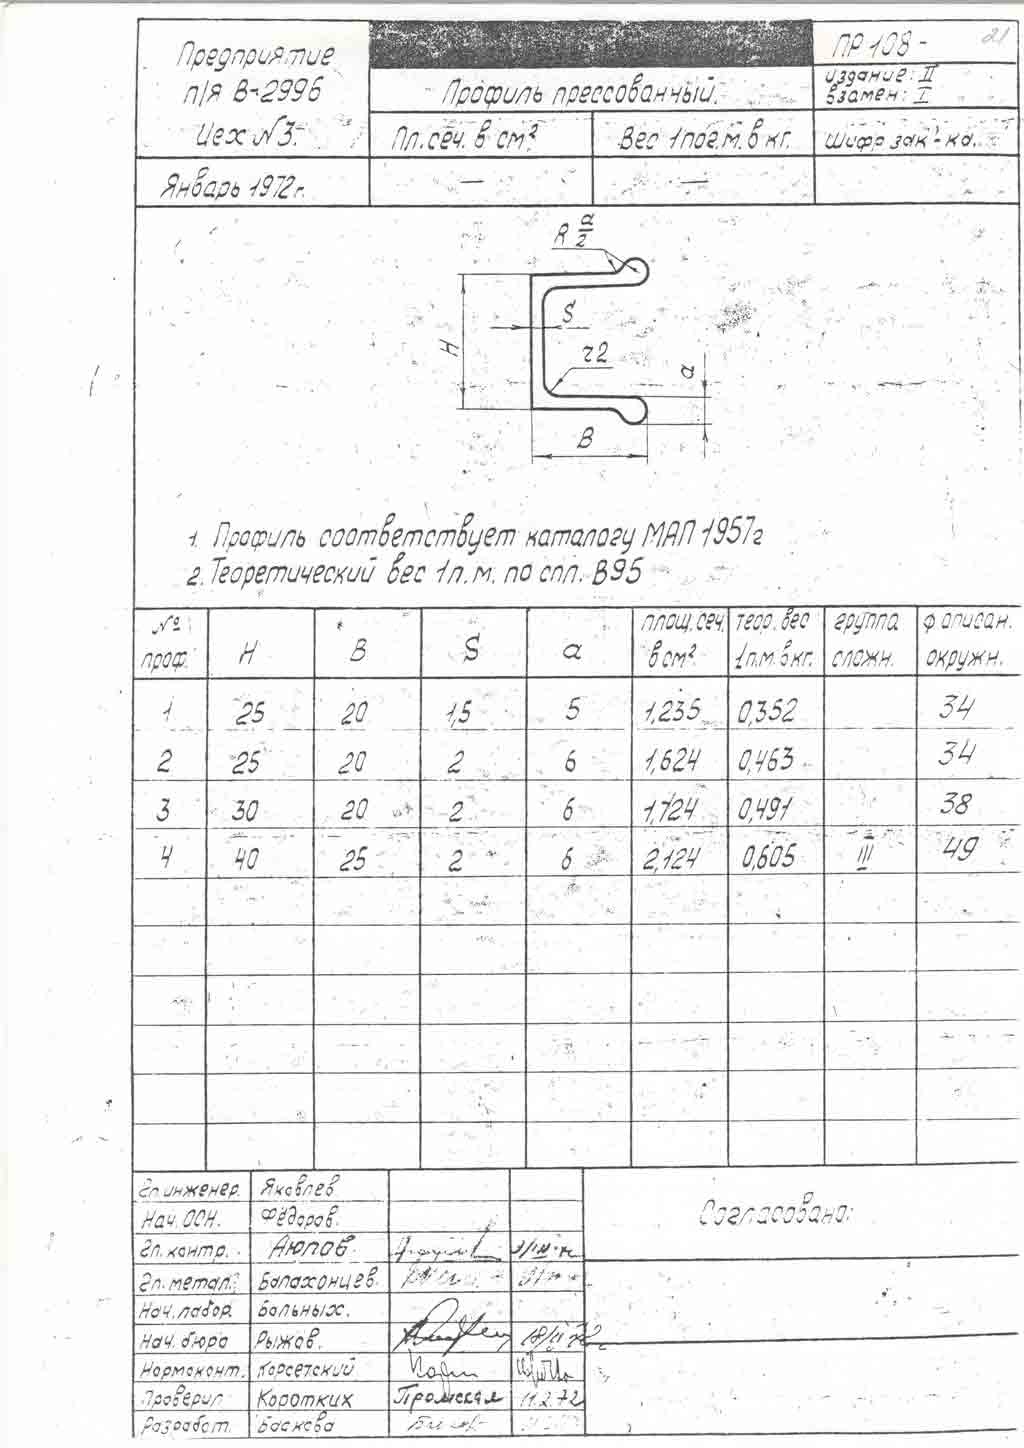 Предприятие
п/я В-2996
Цех №3.
Январь 1972г.
Профиль прессованный.
Пл.сеч. в см²
Вес 1пог.м. в кг.
—
—
ПР 108 -
21
издание: II
взамен: I
Шифр зак-ка.
R a/2
S
H
r2
a
B
1. Профиль соответствует каталогу МАП 1957г
2. Теоретический вес 1п.м. по спл. В95
№ проф. H B S a площ.сеч. в см² теор. вес 1п.м. в кг. группа сложн. ф описан. окружн.
1 25 20 1,5 5 1,235 0,352 34
2 25 20 2 6 1,624 0,463 34
3 30 20 2 6 1,724 0,491 38
4 40 25 2 6 2,124 0,605 III 49
Гл.инженер. Яковлев
Нач.ОСН. Фёдоров.
Гл.контр. Аюпов.
Гл.метал. Балахонцев.
Нач.лабор. Больных.
Нач.бюро Рыжов.
Нормоконт. Корсетский
Проверил Коротких 11.2.72
Разработ. Баскова
Согласовано: